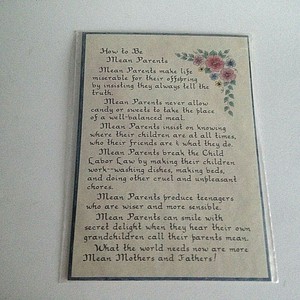 How to Be
Mean Parents
Mean Parents make life
miserable for their offspring
by insisting they always tell the
truth.
Mean Parents never allow
candy or sweets to take the place
of a well-balanced meal.
Mean Parents insist on knowing
where their children are at all times,
who their friends are & what they do.
Mean Parents break the Child
Labor Law by making their children
work-washing dishes, making beds,
and doing other cruel and unpleasant
chores.
Mean Parents produce teenagers
who are wiser and more sensible.
Mean Parents can smile with
secret delight when they hear their own
grandchildren call their parents mean.
What the world needs now are more
Mean Mothers and Fathers!